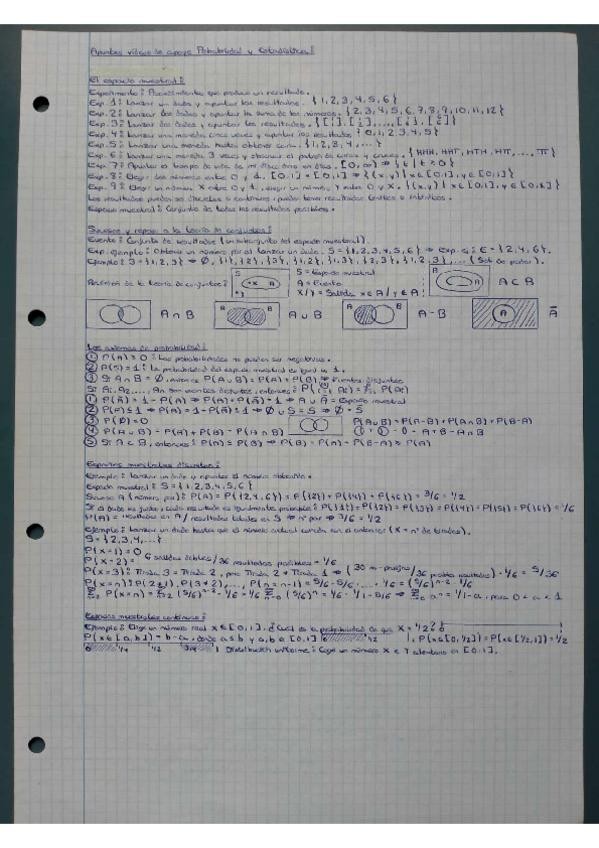 Apuntes vídeos de apoyo Probabilidad y Estadística:
El espacio muestral:
Experimento: Procedimiento que produce un resultado.
Exp. 1: Lanzar un dado y apuntar los resultados. {1,2,3,4,5,6}
Exp. 2: Lanzar dos dados y apuntar la suma de los números. {2,3,4,5,6,7,8,9,10,11,12}
Exp. 3: Lanzar dos dados y apuntar los resultados.
Exp. 4: Lanzar una moneda cinco veces y apuntar los resultados: {0,1,2,3,4,5}
Exp. 5: Lanzar una moneda hasta obtener cara. {1,2,3,4,...}
Exp. 6: Lanzar una moneda 3 veces y observar el patrón de caras y cruces. {HHH, HHT, HTH, HTT, ...,
Exp. 7: Apuntar el tiempo de vida de un disco en días. [0,∞) ⇒ {t | t ≥ 0}
Exp. 8: Elegir dos números entre 0 y 1. [0,1] × [0,1] ⇒ {(x,y) | x∈[0,1], y∈[0,1]}
Exp. 9: Elegir un número x entre 0 y 1, elegir un número y entre 0 y x. {(x,y) | x∈[0,1], y∈[0,x]}
Los resultados pueden ser discretos o continuos, pueden tener resultados finitos o infinitos.
Espacio muestral: Conjunto de todos los resultados posibles.
Sucesos y repaso a la teoría de conjuntos:
Evento: Conjunto de resultados (un subconjunto del espacio muestral).
Exp. ejemplo: Obtener un número par al lanzar un dado. S={1,2,3,4,5,6} ⇒ E={2,4,6}.
Ejemplo: S={1,2,3} ⇒ Ø, {1}, {2}, {3}, {1,2}, {1,3}, {2,3}, {1,2,3}
S = Espacio muestral
de la teoría de conjuntos: A = Evento A ⊂ B
A ∩ B A ∪ B A - B Ā
Los axiomas de probabilidad:
① P(A) ≥ 0: Las probabilidades no pueden ser negativas.
② P(S) = 1: La probabilidad del espacio muestral es igual a 1.
③ Si A∩B = Ø, entonces P(A∪B) = P(A) + P(B) ⇒ Eventos disjuntos
Si A₁, A₂, ..., An son eventos disjuntos, entonces:
① P(Ā) = 1 - P(A) ⇒ P(A) + P(Ā) = 1 ⇒ A ∪ Ā = Espacio muestral
③ P(Ø) = 0 P(A∪B) = P(A-B) + P(A∩B) + P(B-A)
④ P(A∪B) = P(A) + P(B) - P(A∩B)
⑤ Si A ⊂ B, entonces: P(A) ≤ P(B)
Espacios muestrales discretos:
Ejemplo: Lanzar un dado y apuntar el número obtenido.
Espacio muestral: S={1,2,3,4,5,6}
Suceso A (número par): P(A) = P({2,4,6}) = P({2}) + P({4}) + P({6}) = 3/6 = 1/2
Si el dado es justo, cada resultado es igualmente probable: P({1}) = P({2}) = P({3}) = P({4}) = P({5}) = P({6}) = 1/6
P(A) = resultados en A / resultados totales en S ⇒ nº par ⇒ 3/6 = 1/2
Ejemplo: Lanzar un dado hasta que el número actual coincida con el anterior (X = nº de tiradas).
S={2,3,4,...}
P(X=1) = 0
P(X=2) = 6 salidas dobles/36 resultados posibles = 1/6
P(X=3): Tirada 3 = Tirada 2, pero Tirada 2 ≠ Tirada 1 ⇒ · 1/6 = 5/36
Espacios muestrales continuos:
Ejemplo: Elegir un número real x∈[0,1]. ¿Cuál es la probabilidad de que x < 1/2?
P(x∈[a,b]) = b-a, donde a≤b y a,b∈[0,1] , P(x∈[0,1/2]) = P(x∈[1/2,1]) = 1/2
0 1/4 1/2 3/4 1 Distribución uniforme: Coger un número x e y aleatorio en [0,1].